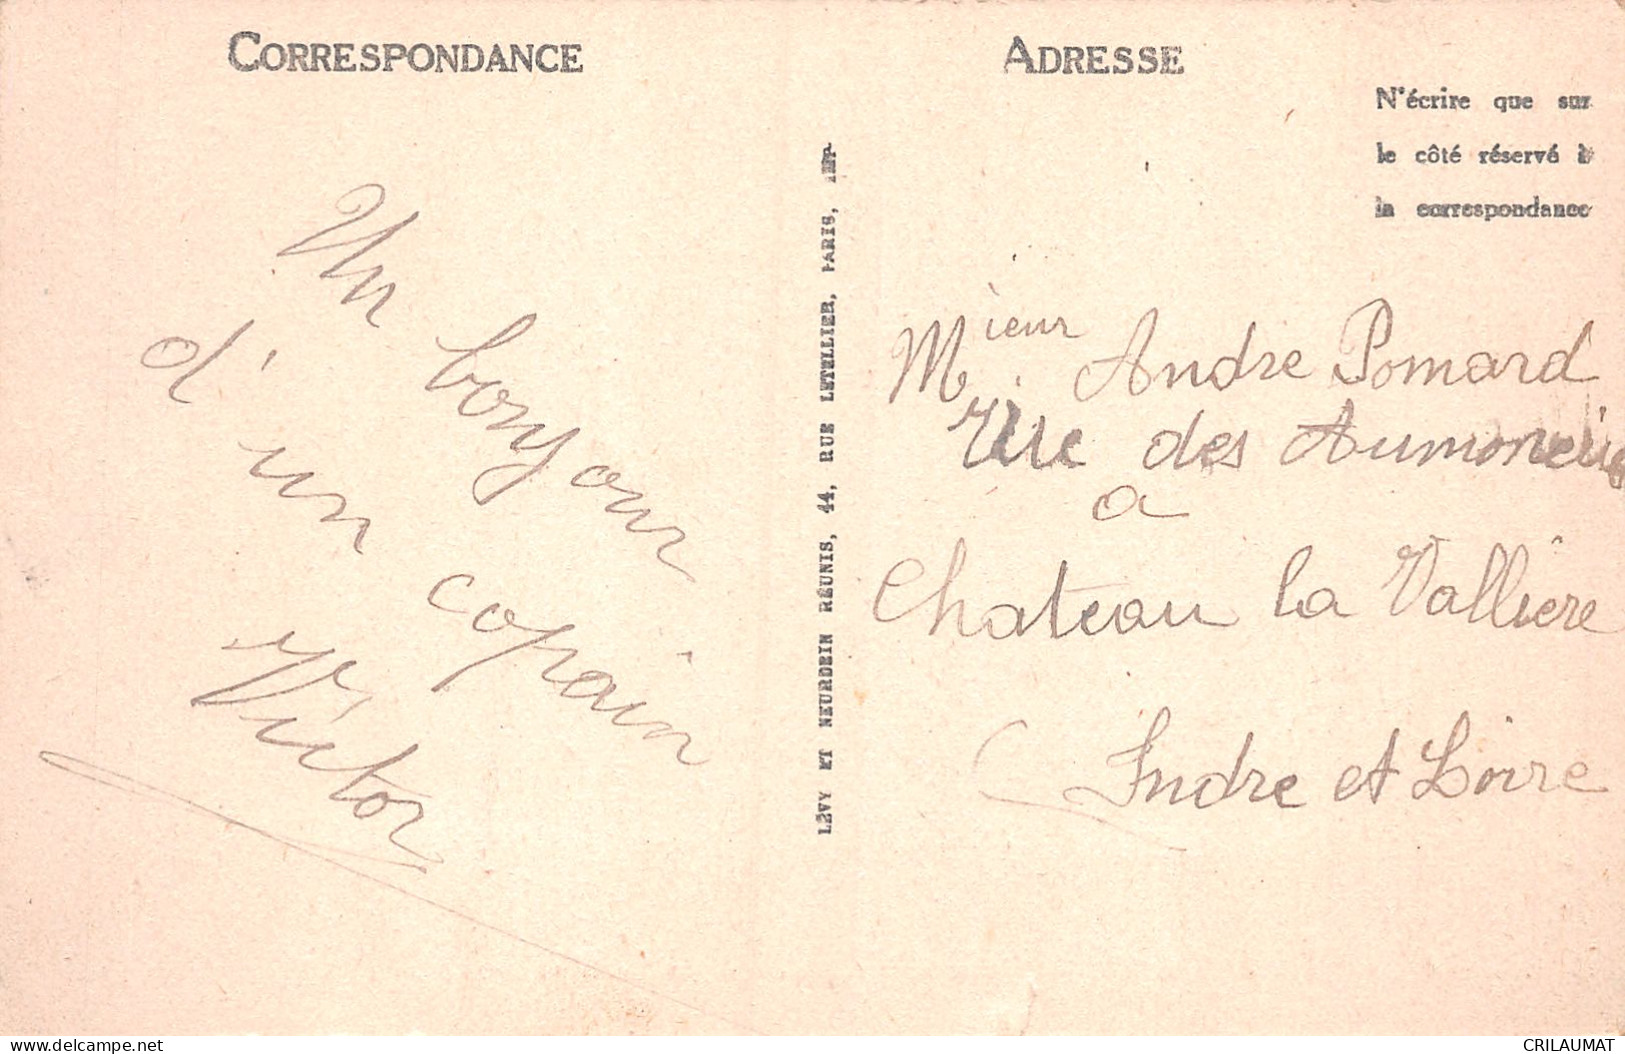 CORRESPONDANCE
Un bonjour
d'un copain
Victor
LÉVY ET NEURDEIN RÉUNIS, 44, RUE LETELLIER, PARIS, IMP.
ADRESSE
N'écrire que sur
le côté réservé à
la correspondance
Mieur Andre Pomard
Rue des Aumoneries
a
Chateau la Vallière
Indre et Loire
www.delcampe.net
CRILAUMAT